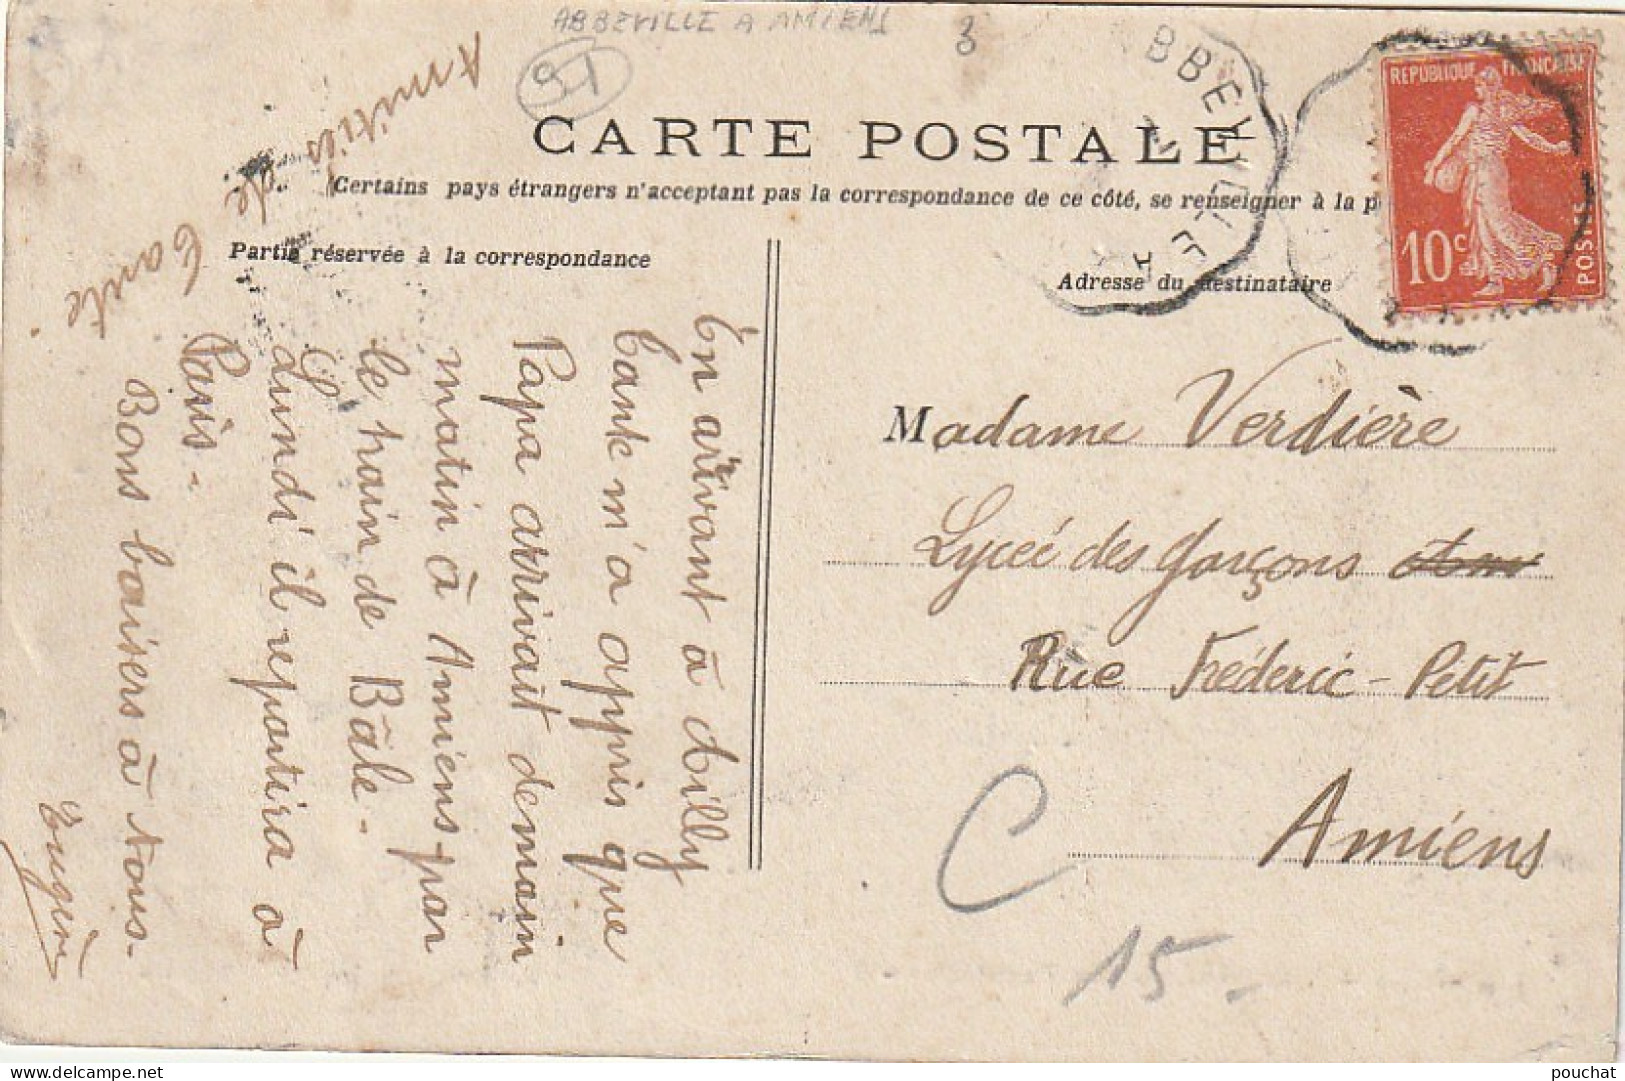 ABBEVILLE A AMIENS
3
91
CARTE POSTALE
Certains pays étrangers n'acceptant pas la correspondance de ce côté, se renseigner à la p
Partie réservée à la correspondance
Adresse du destinataire
REPUBLIQUE FRANÇAISE
10c
POSTES
BBEVILLE A
Madame Verdière
Lycée des Garçons
Rue Frédéric-Petit
Amiens
C
15-
En arrivant à Ailly
tante m'a appris que
Papa arrivait demain
matin à Amiens par
le train de Bâle -
Lundi il repartira à
Paris -
Bons baisers à tous -
Amitiés
de
tante